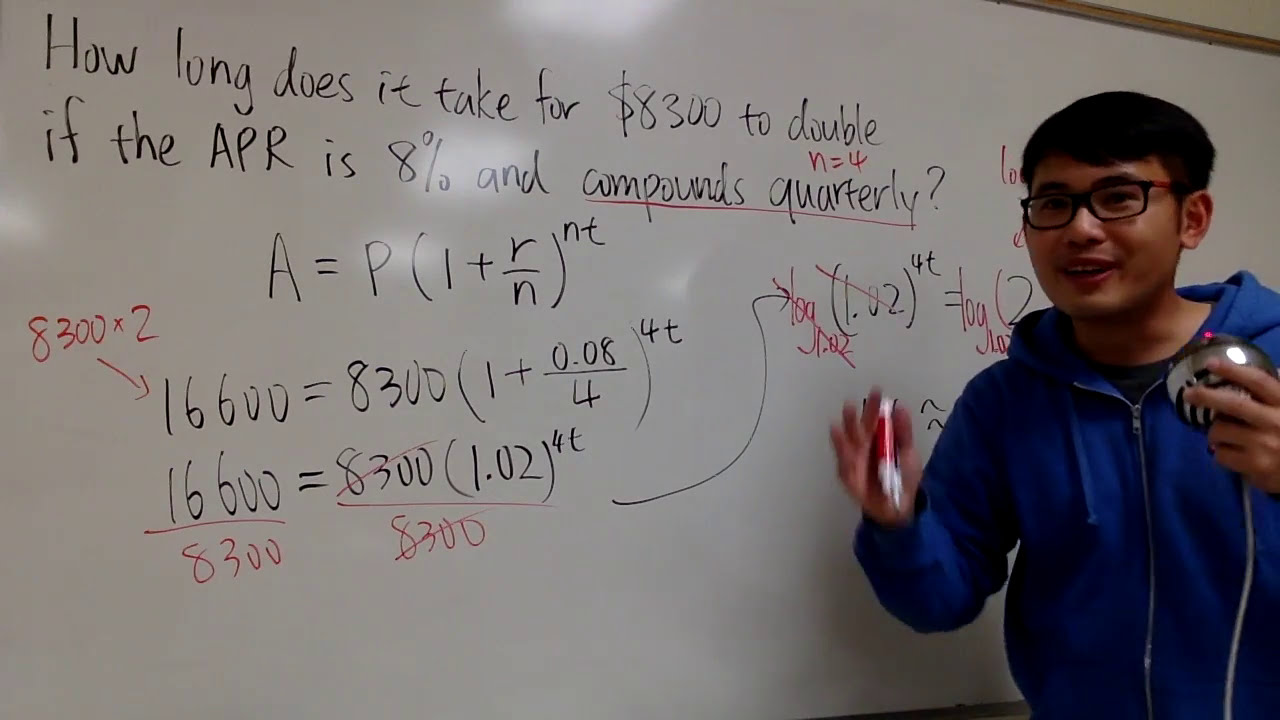 How long does it take for $8300 to double
if the APR is 8% and compounds quarterly?
n=4
A = P(1+r/n)^nt
8300×2
16600 = 8300(1+0.08/4)^4t
16600/8300 = 8300(1.02)^4t/8300
log_1.02 (1.02)^4t = log_1.02 (2
≈